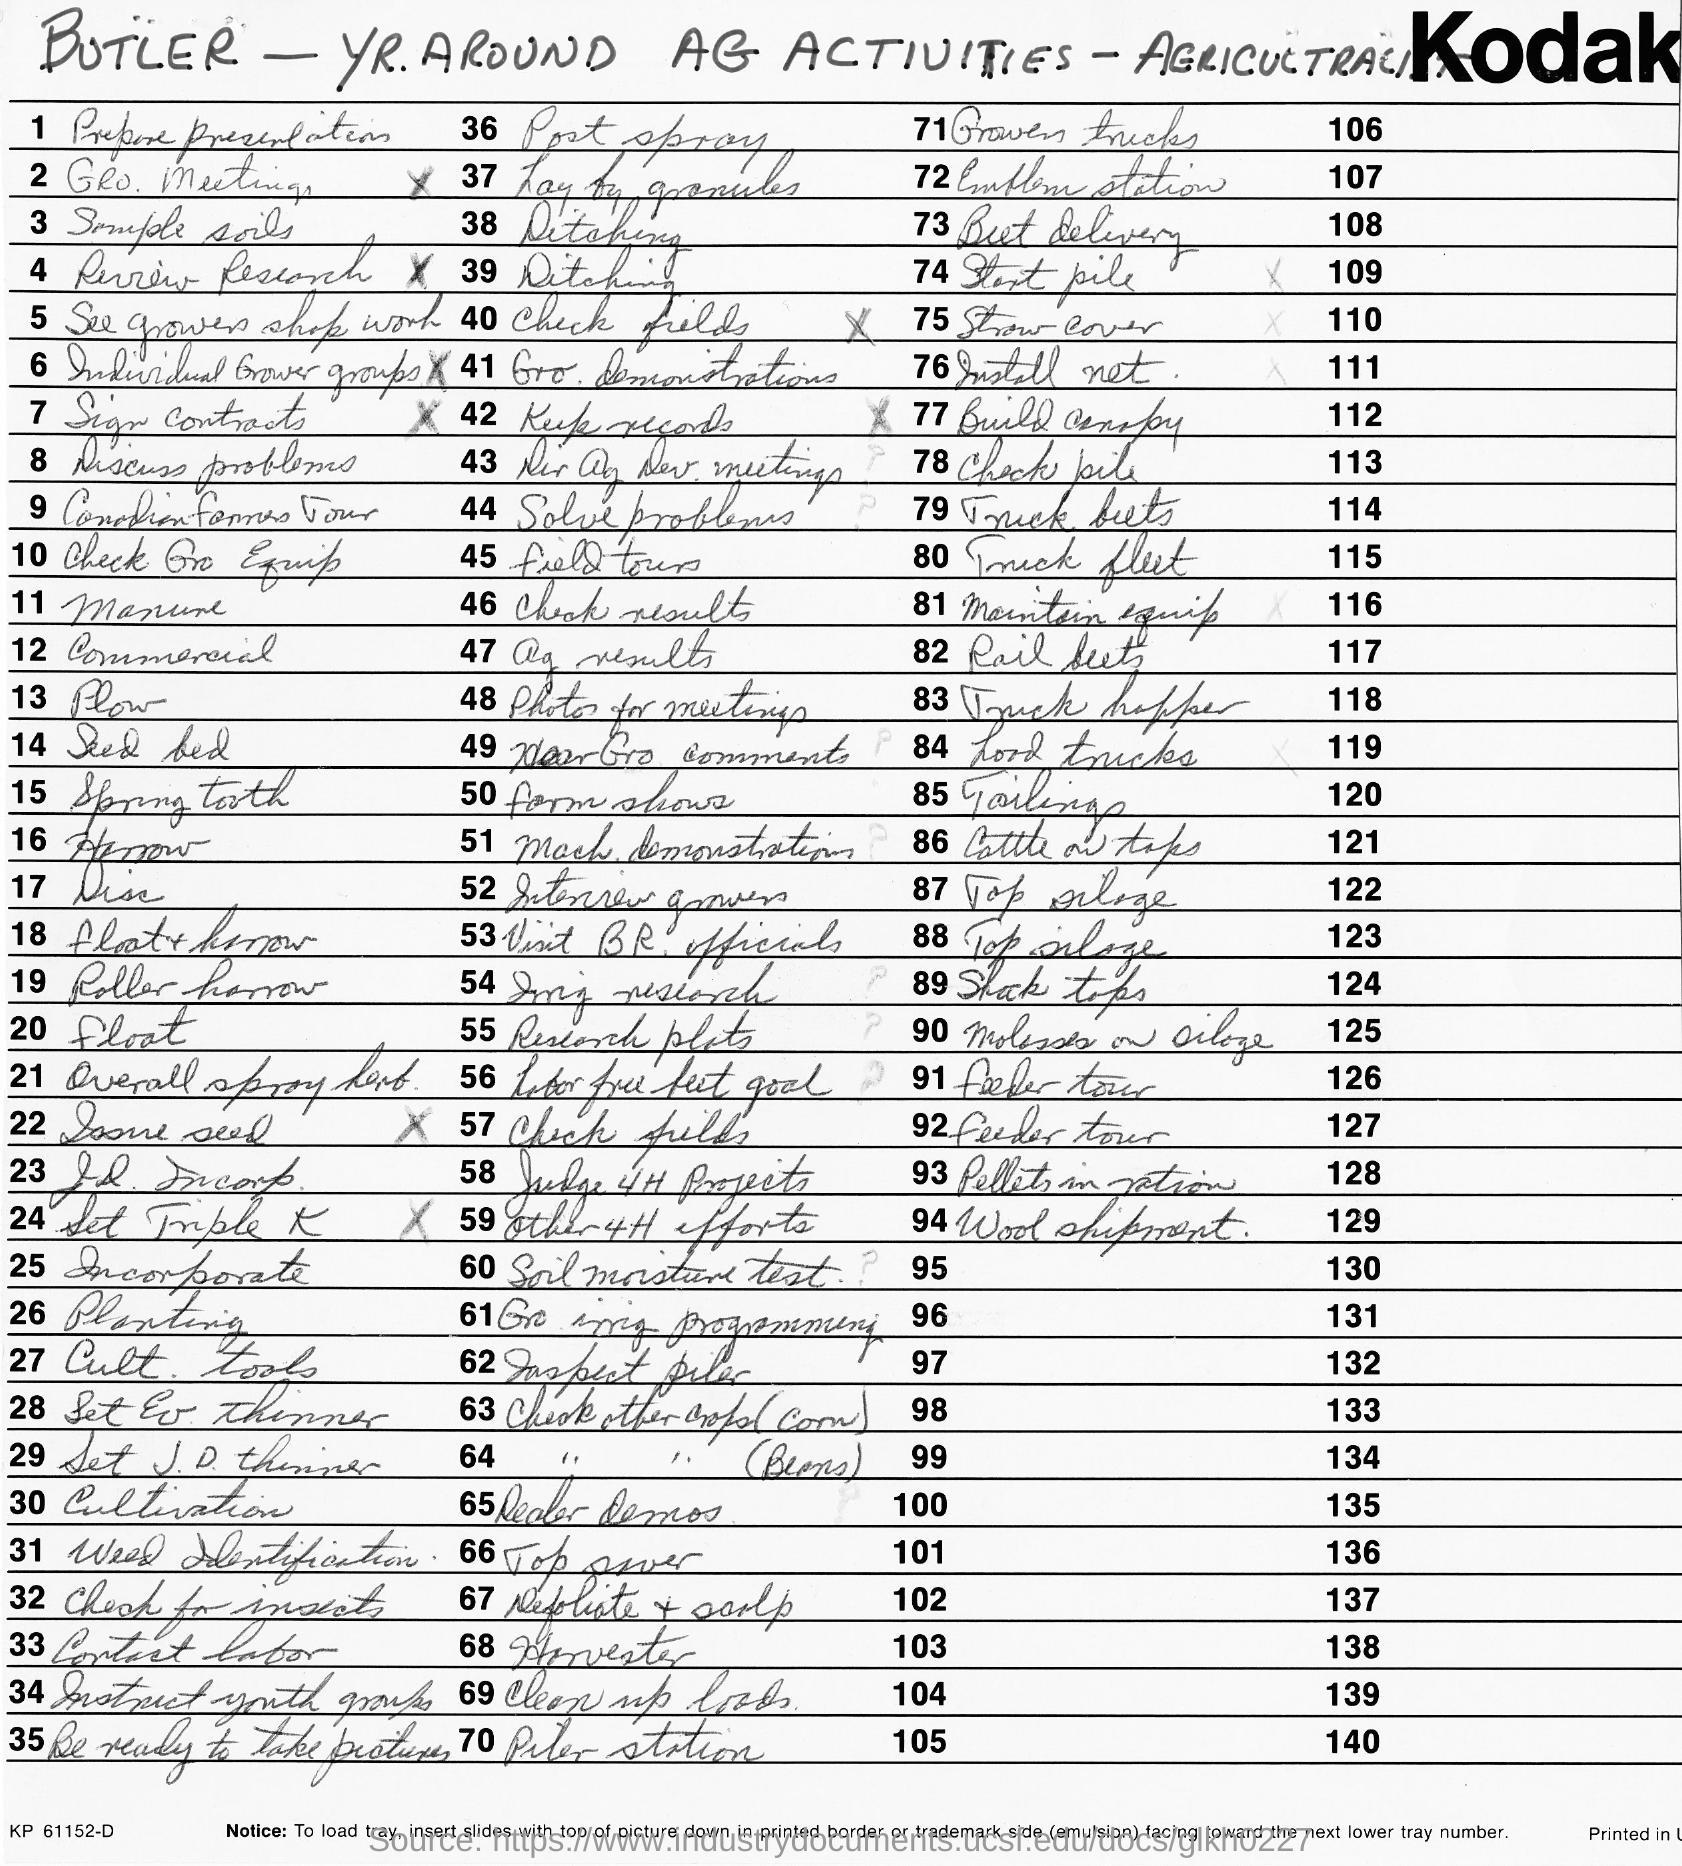 BUTLER — YR. AROUND AG ACTIVITIES - AGRICULTRALIST
Kodak
1 Prepare presentations
2 Gro. Meetings X
3 Sample soils
4 Review Research X
5 See growers shop work
6 Individual Grower groups X
7 Sign contracts X
8 Discuss problems
9 Canadian Farmers Tour
10 Check Gro Equip
11 Manure
12 Commercial
13 Plow
14 Seed bed
15 Spring tooth
16 Harrow
17 Disc
18 Float + harrow
19 Roller harrow
20 Float
21 Overall spray herb.
22 Issue seed X
23 J.D. Incorp.
24 Set Triple K X
25 Incorporate
26 Planting
27 Cult. tools
28 Set Ev. thinner
29 Set J.D. thinner
30 Cultivation
31 Weed Identification.
32 Check for insects
33 Contact labor
34 Instruct youth groups
35 Be ready to take pictures
36 Post spray
37 Lay by granules
38 Ditching
39 Ditching
40 Check fields X
41 Gro. demonstrations
42 Keep records X
43 Dir Ag Dev. meetings ?
44 Solve problems ?
45 Field tours
46 Check results
47 Ag results
48 Photos for meetings
49 Hear Gro comments ?
50 Farm shows
51 Mach. demonstrations ?
52 Interview growers
53 Visit B.R. officials
54 Irrig research ?
55 Research plots ?
56 Labor free beet goal ?
57 Check fields
58 Judge 4H Projects
59 Other 4H efforts
60 Soil moisture test. ?
61 Gro irrig programming
62 Inspect piler
63 Check other crops (Corn)
64 " " (Beans)
65 Dealer demos ?
66 Top saver
67 Defoliate + scalp
68 Harvester
69 Clean up loads.
70 Piler station
71 Growers trucks
72 Emblem station
73 Beet delivery
74 Start pile X
75 Straw cover X
76 Install net. X
77 Build canopy
78 Check pile
79 Truck beets
80 Truck fleet
81 Maintain equip X
82 Rail beets
83 Truck hopper
84 Load trucks X
85 Tailings
86 Cattle on tops
87 Top silage
88 Top silage
89 Stack tops
90 Molasses on silage
91 Feeder tour
92 Feeder tour
93 Pellets in ration
94 Wool shipment.
95
96
97
98
99
100
101
102
103
104
105
106
107
108
109
110
111
112
113
114
115
116
117
118
119
120
121
122
123
124
125
126
127
128
129
130
131
132
133
134
135
136
137
138
139
140
KP 61152-D
Notice: To load tray, insert slides with top of picture down in printed border or trademark side (emulsion) facing toward the next lower tray number.
Printed in U
Source: https://www.industrydocuments.ucsf.edu/docs/glkh0227